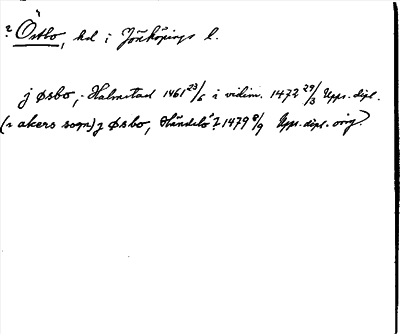 ? Östbo, hd i Jönköpings l.
j øsbo, Halmstad 1461 23/6 i vidim. 1472 29/3 Upps. dipl.
(i akers sogn) j Øsbo, Händelö? 1479 8/9 Upps. dipl. orig.